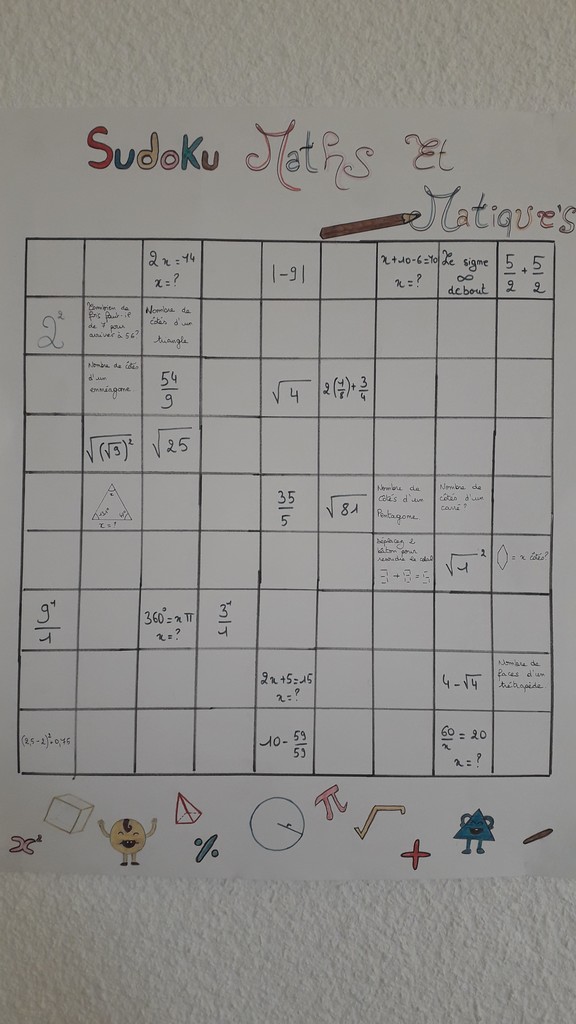 Sudoku Maths Et
Matique's
2x = 14
x = ?
|-9|
x + 10 - 6 = 10
x = ?
Le signe
∞
debout
5/2 + 5/2
2²
Combien de
fois faut-il
de 7 pour
arriver à 56?
Nombre de
côtés d'un
triangle
Nombre de côtés
d'un
ennéagone
54/9
√4
2(1/8) + 3/4
√(√9)²
√25
x = ?
35/5
√81
Nombre de
côtés d'un
Pentagone
Nombre de
côtés d'un
carré?
Déplacez 2
bâton pour
√1²
= x côtés?
9¹/1
360° = xπ
x = ?
3¹/1
2x + 5 = 15
x = ?
4 - √4
Nombre de
faces d'un
(2,5 - 2)² + 0,75
10 - 59/59
60/x = 20
x = ?
π
%
+